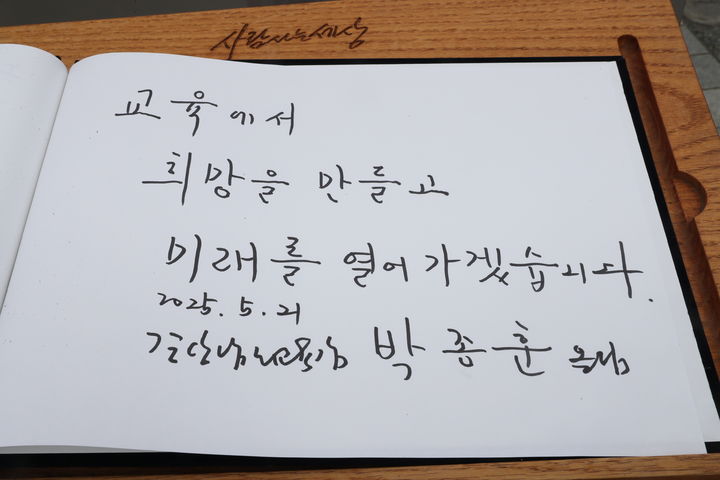 사람사는세상
교육에서
희망을 만들고
미래를 열어가겠습니다.
2025. 5. 21
경상남도교육감 박종훈 올림